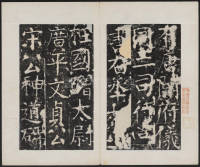 有唐開府儀
同三司行尚
書右丞相上
柱國贈太尉
廣平文貞公
宋公神道碑